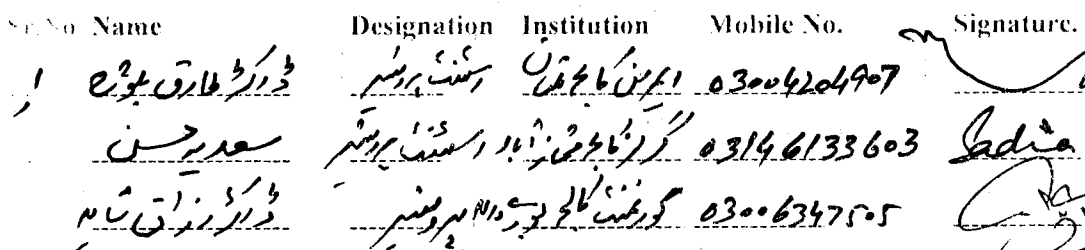 Sr.No Name Designation Institution Mobile No. Signature.
ڈاکٹر طارق بلوچ اسسٹنٹ پروفیسر ایمرسن کالج ملتان 03004204907
سعدیہ حسن اسسٹنٹ پروفیسر گرلز کالج 03146133603 Sadia
ڈاکٹر رزاق شاہد پروفیسر گورنمنٹ کالج بورے والا 03006347505